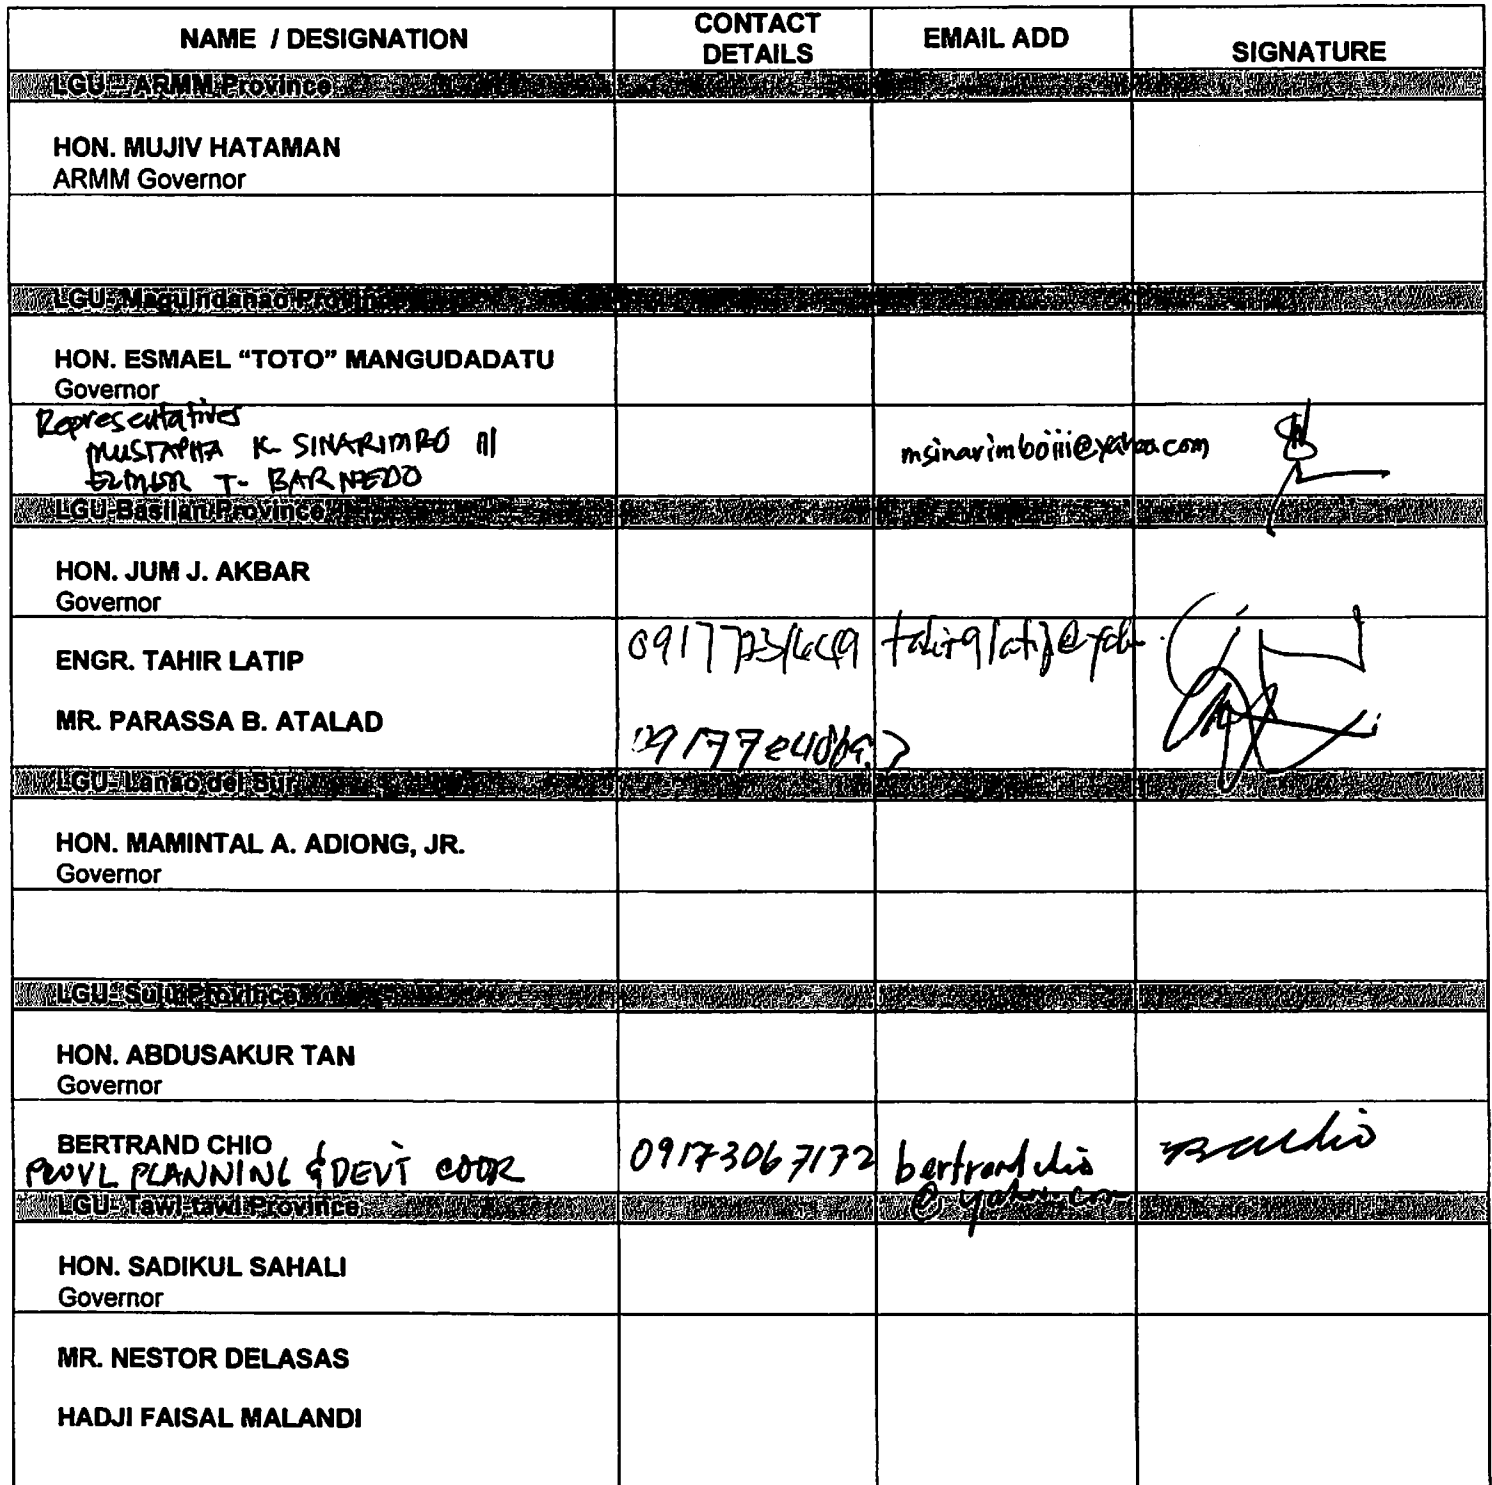 NAME / DESIGNATION
CONTACT
DETAILS
EMAIL ADD
SIGNATURE
LGU - ARMM Province
HON. MUJIV HATAMAN
ARMM Governor
LGU- Maguindanao Province
HON. ESMAEL “TOTO” MANGUDADATU
Governor
Representatives
MUSTAPHA K SINARIMBO III
T- BARNEDO
msinarimboiii@yahoo.com
LGU-Basilan Province
HON. JUM J. AKBAR
Governor
ENGR. TAHIR LATIP
MR. PARASSA B. ATALAD
LGU- Lanao del Sur
HON. MAMINTAL A. ADIONG, JR.
Governor
LGU- Sulu Province
HON. ABDUSAKUR TAN
Governor
BERTRAND CHIO
PROVL PLANNING & DEVT COOR
09173067172
bertrandchio
@yahoo.com
LGU- Tawi-tawi Province
HON. SADIKUL SAHALI
Governor
MR. NESTOR DELASAS
HADJI FAISAL MALANDI